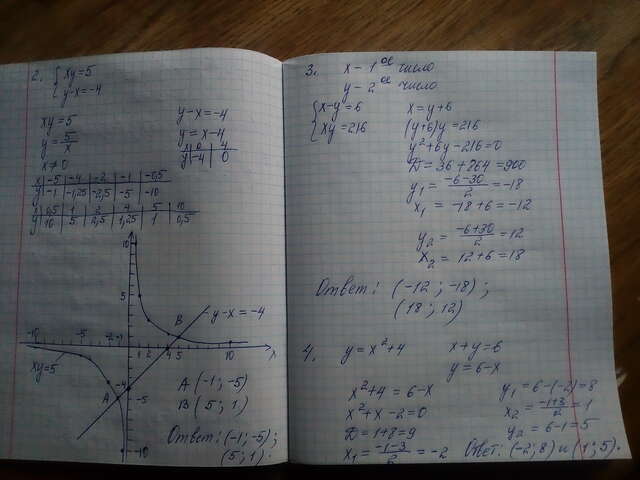 2. { xy=5
y-x=-4
xy=5
y=5/x
x≠0
y-x=-4
y=x-4
x 0 4
y -4 0
x -5 -4 -2 -1 -0,5
y -1 -1,25 -2,5 -5 -10
x 0,5 1 2 4 5 10
y 10 5 2,5 1,25 1 0,5
10
5
-10 -5 -2 -1 1 2 4 5 10 x
-4
-5
-10
B
A
y-x=-4
xy=5
A (-1; -5)
B (5; 1)
Ответ: (-1; -5);
(5; 1).
3. x - 1ое число
y - 2ое число
{ x-y=6
xy=216
x=y+6
(y+6)y=216
y²+6y-216=0
D=36+864=900
y₁=(-6-30)/2=-18
x₁=-18+6=-12
y₂=(-6+30)/2=12
x₂=12+6=18
Ответ: (-12; -18);
(18; 12)
4. y=x²+4 x+y=6
y=6-x
x²+4=6-x
x²+x-2=0
D=1+8=9
x₁=(-1-3)/2=-2
y₁=6-(-2)=8
x₂=(-1+3)/2=1
y₂=6-1=5
Ответ: (-2; 8) и (1; 5).